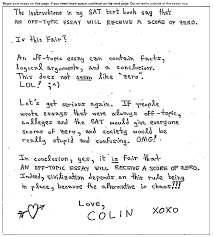 Begin your essay on this page. If you need more space, continue on the next page. Do not write outside of the essay box.
The instructions in my SAT test book say that
AN OFF-TOPIC ESSAY WILL RECEIVE A SCORE OF ZERO.
Is this fair?
An off-topic essay can contain facts,
logical arguments, and a conclusion.
This does not seem like "zero".
LOL! ;^)
Let's get serious again. If people
wrote essays that were always off-topic,
colleges and the SAT would give everyone
scores of zero, and society would be
really stupid and confusing. OMG!
In conclusion, yes, it is fair that
AN OFF-TOPIC ESSAY WILL RECEIVE A SCORE OF ZERO.
Indeed, civilization depends on this rule being
in place, because the alternative is chaos!!!
Love,
COLIN XOXO